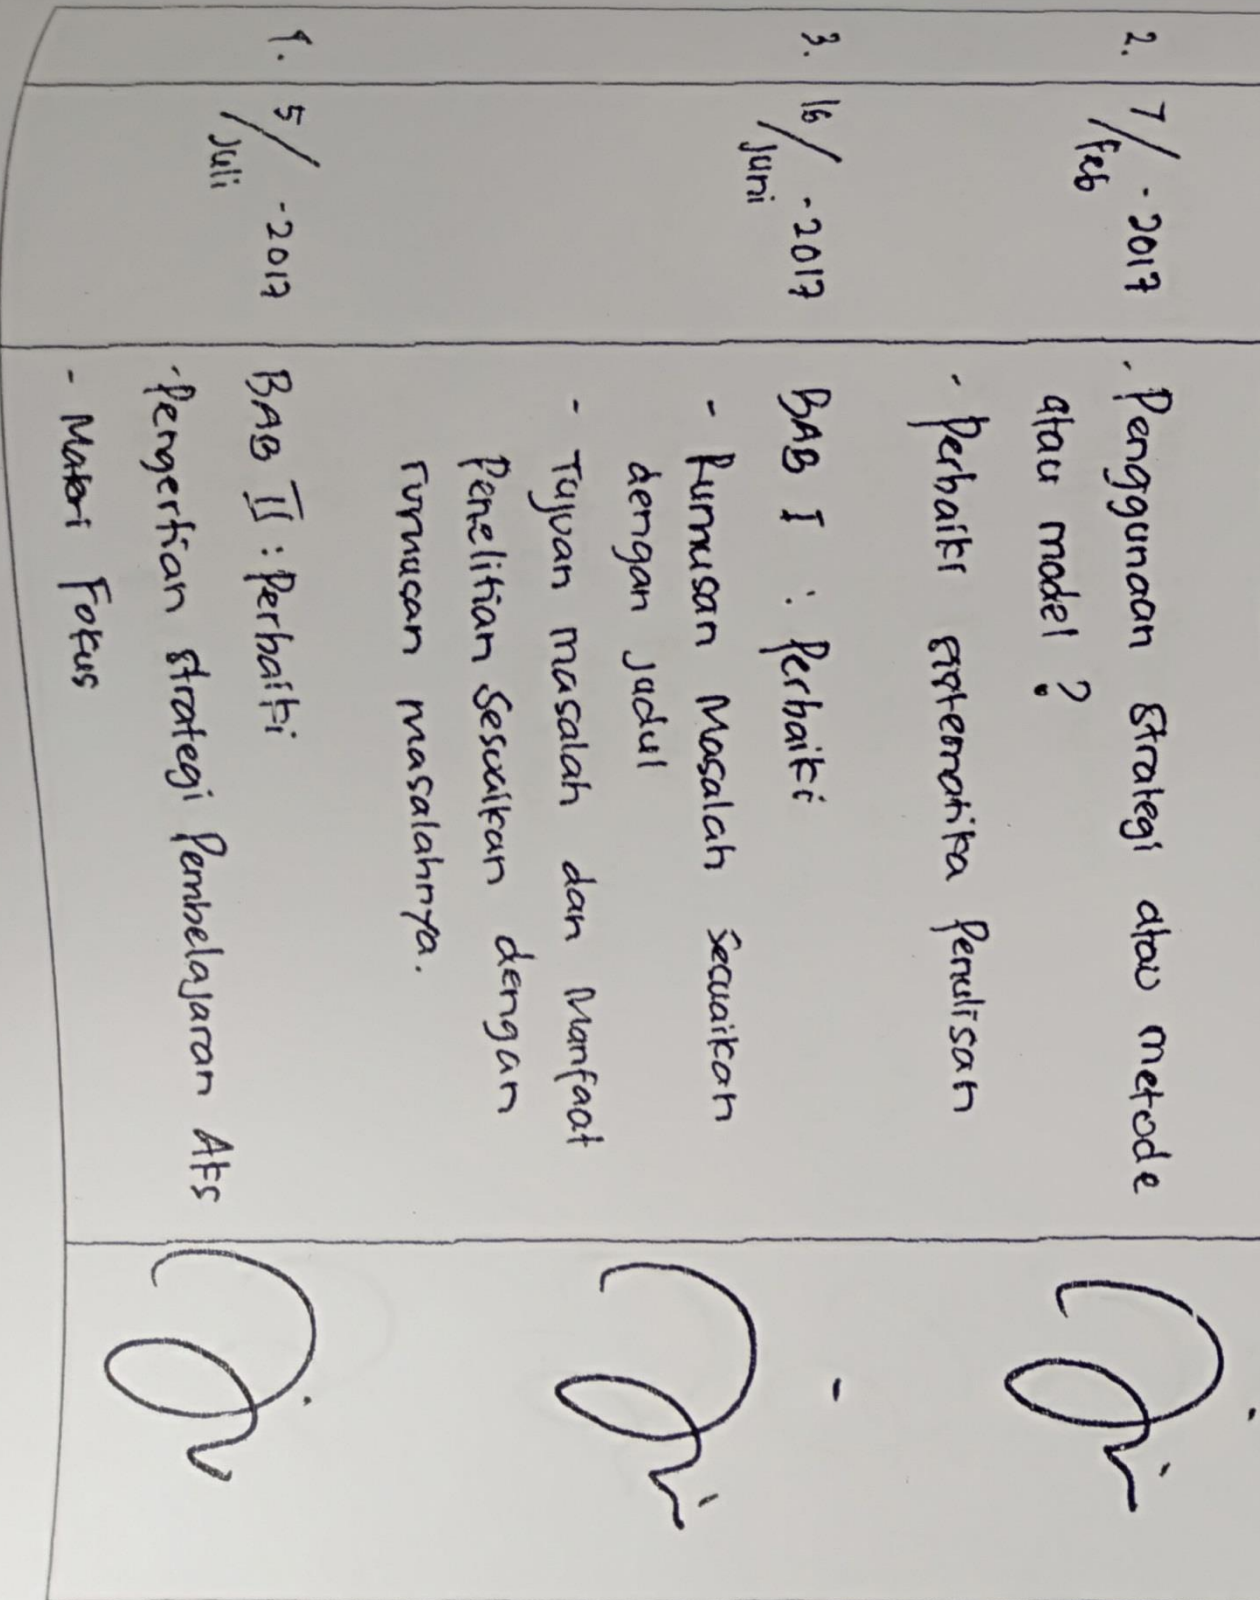 2. 7/Feb - 2017 - Penggunaan strategi atau metode
atau model ?
- Perbaiki sistematika Penulisan
3. 16/Juni - 2017 BAB I : Perbaiki
- Rumusan Masalah Sesuaikan
dengan judul
- Tujuan masalah dan Manfaat
Penelitian Sesuaikan dengan
rumusan masalahnya.
4. 5/Juli - 2017 BAB II : Perbaiki
- Pengertian strategi Pembelajaran Aks
- Materi Fokus